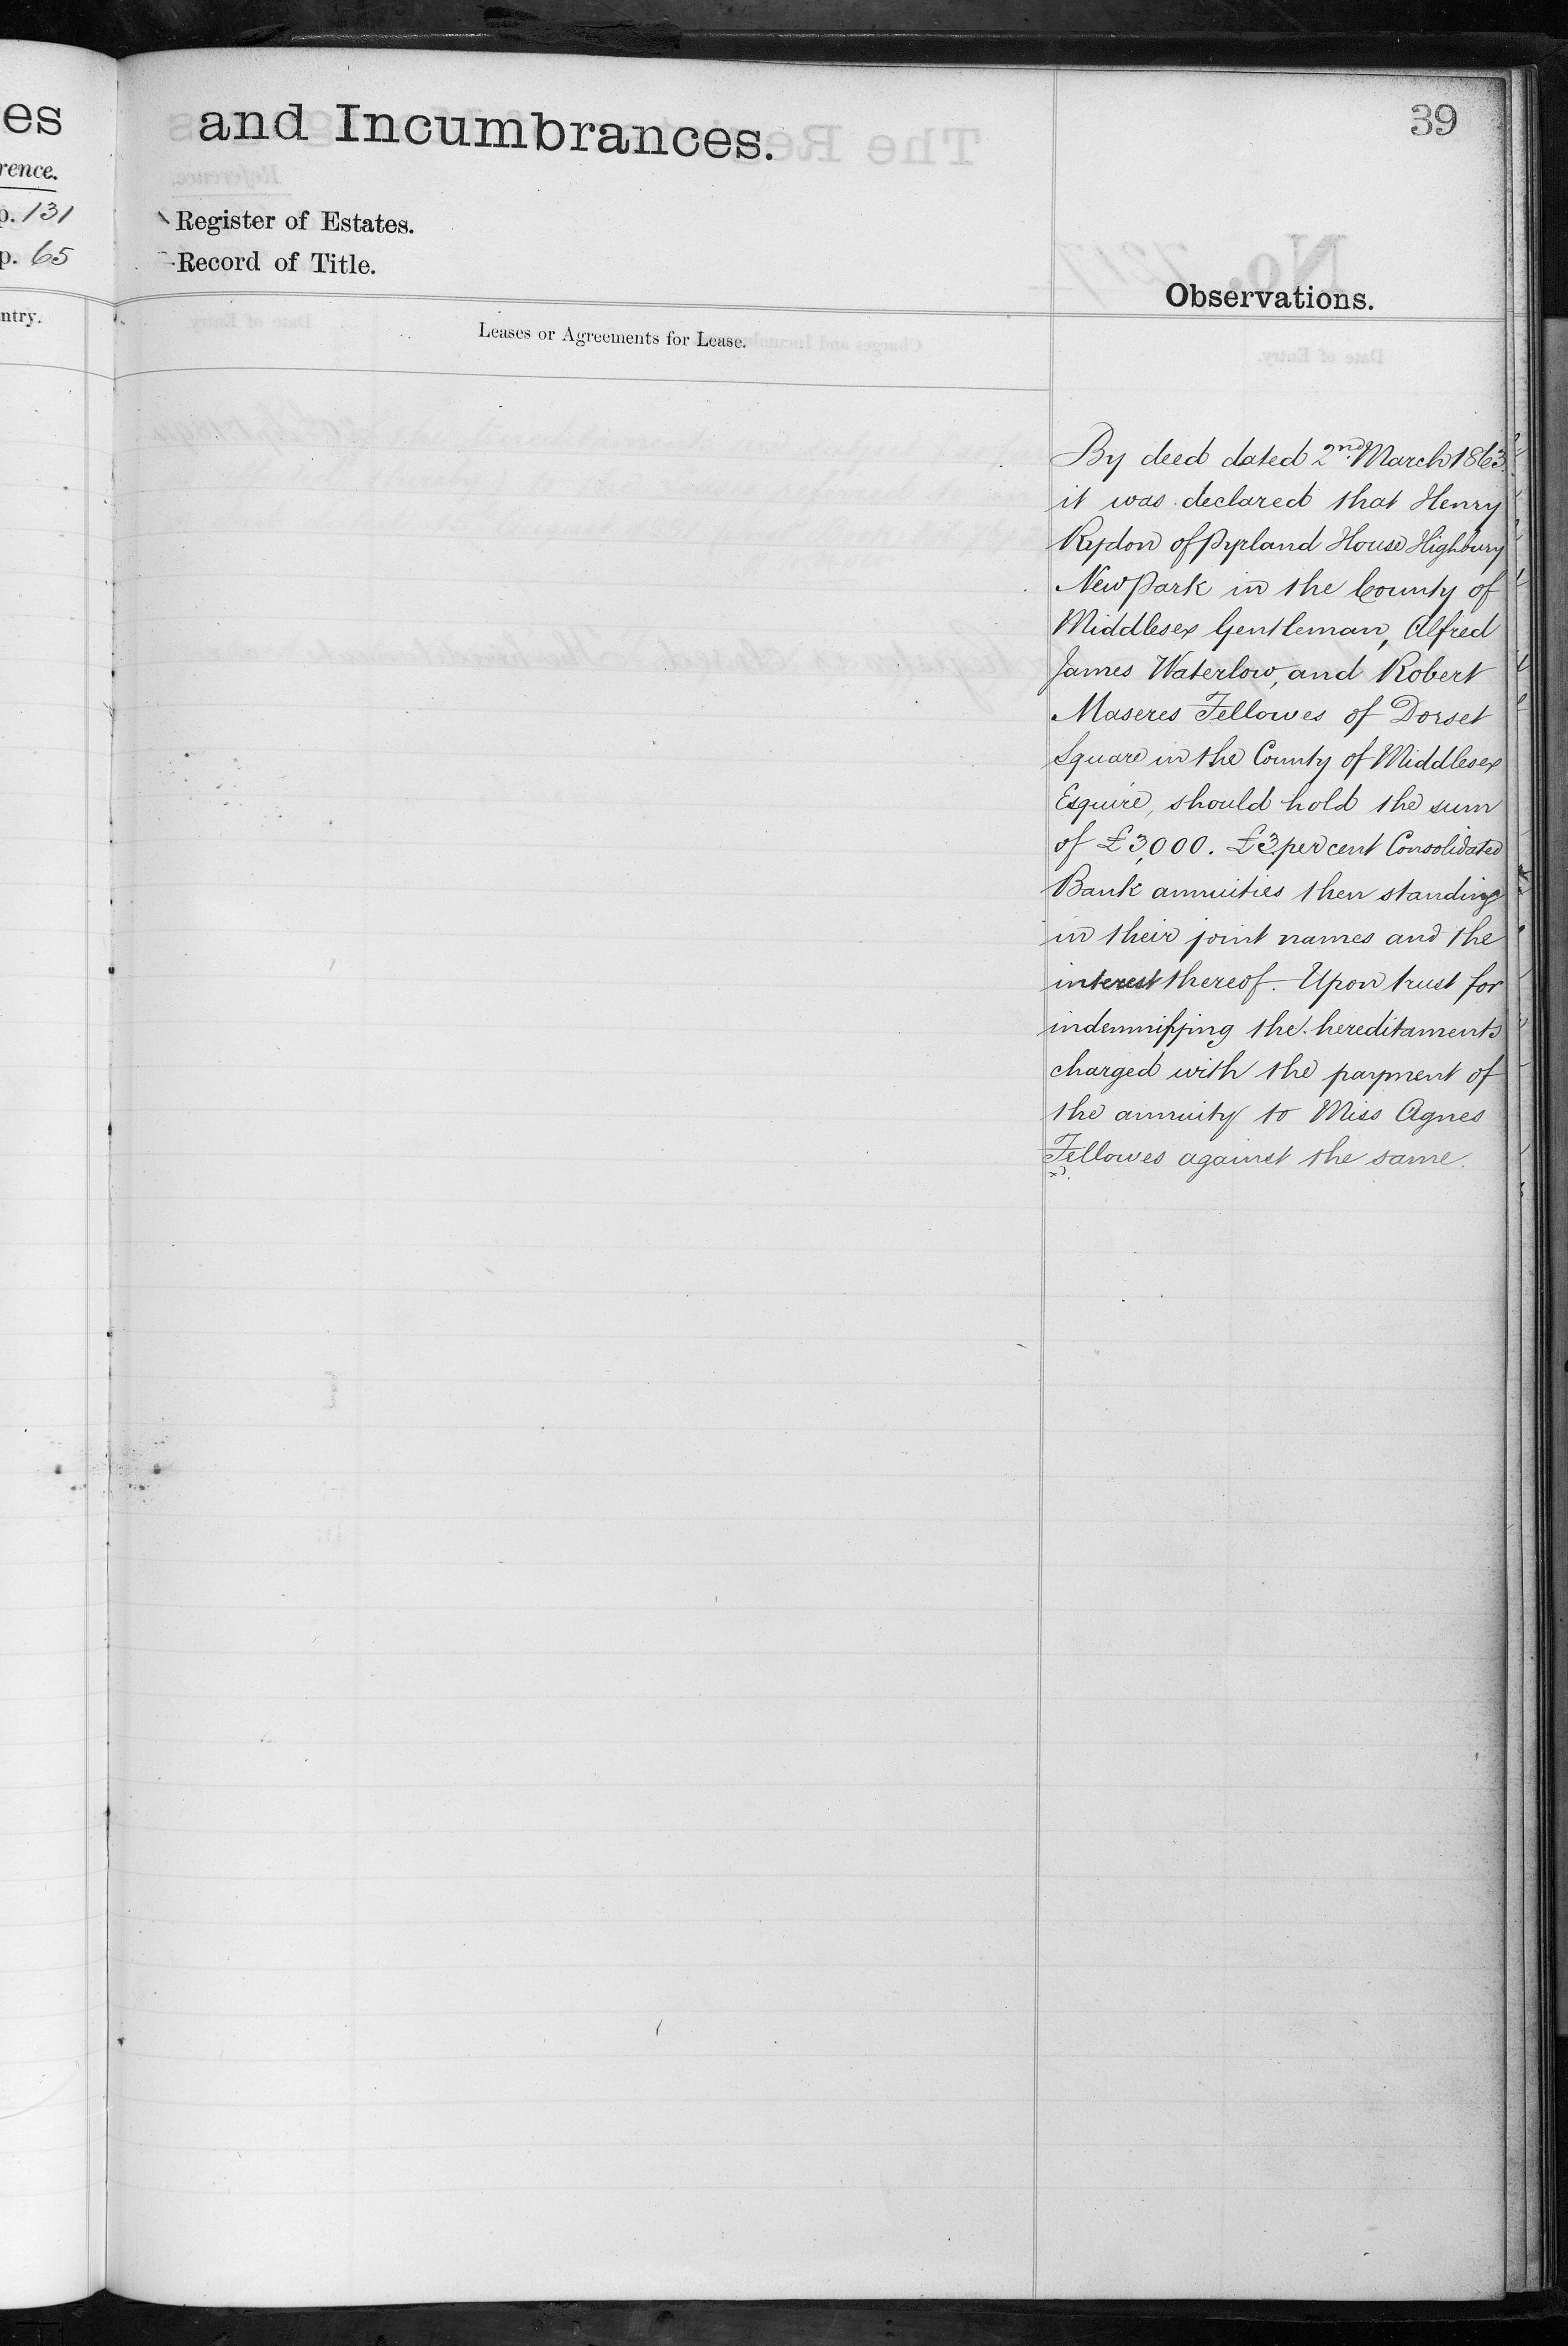 es
rence.
p. 131
p. 65
ntry.
and Incumbrances.
39
Register of Estates.
Record of Title.
Leases or Agreements for Lease.
Observations.
By deed dated 2nd March 1863
it was declared that Henry
Rydon of Pyrland House Highbury
New Park in the County of
Middlesex Gentleman, Alfred
James Waterlow, and Robert
Maseres Fellowes of Dorset
Square in the County of Middlesex
Esquire, should hold the sum
of £3,000. £3 per cent Consolidated
Bank annuities then standing
in their joint names and the
interest thereof. Upon trust for
indemnifying the hereditaments
charged with the payment of
the annuity to Miss Agnes
Fellowes against the same.